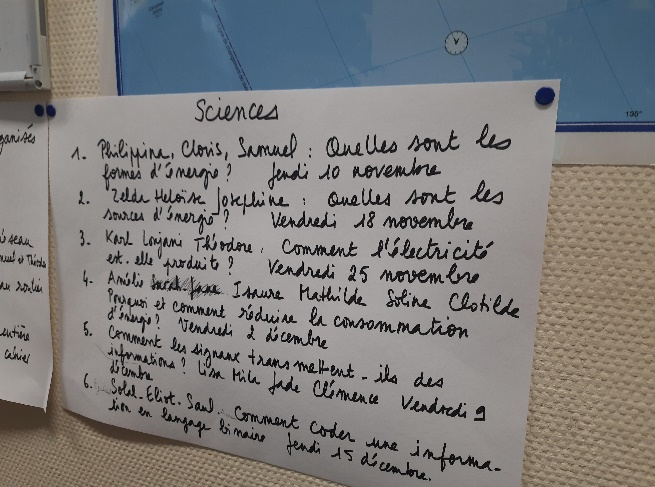 ganisés
Théodo
entière
cahier
180°
Sciences
1. Philippina, Cloris, Samuel : Quelles sont les
formes d'énergie ? Jeudi 10 novembre
2. Zelda Heloïse Josephine : Quelles sont les
sources d'énergie ? Vendredi 18 novembre
3. Karl Théodore. Comment l'électricité
est-elle produite ? Vendredi 25 novembre
4. Amélie Isaure Mathilde Soline Clotilde
Pourquoi et comment réduire la consommation
d'énergie ? Vendredi 2 décembre
5. Comment les signaux transmettent-ils des
informations ? Lisa Mila Jade Clémence Vendredi 9
décembre
6. Solal. Eliot. Saul. Comment coder une informa-
tion en langage binaire Jeudi 15 décembre.